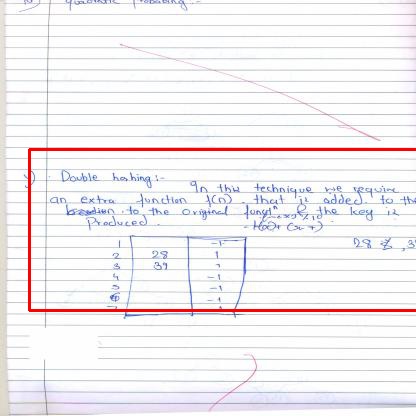 Quadratic probing:-
v) Double hashing:-
In this technique we require
an extra function f(n) that is added to the
to the original funcⁿ & the key is
Produced.
28 , 3
1 -1
2 28 1
3 39 1
4 -1
5 -1
6 -1